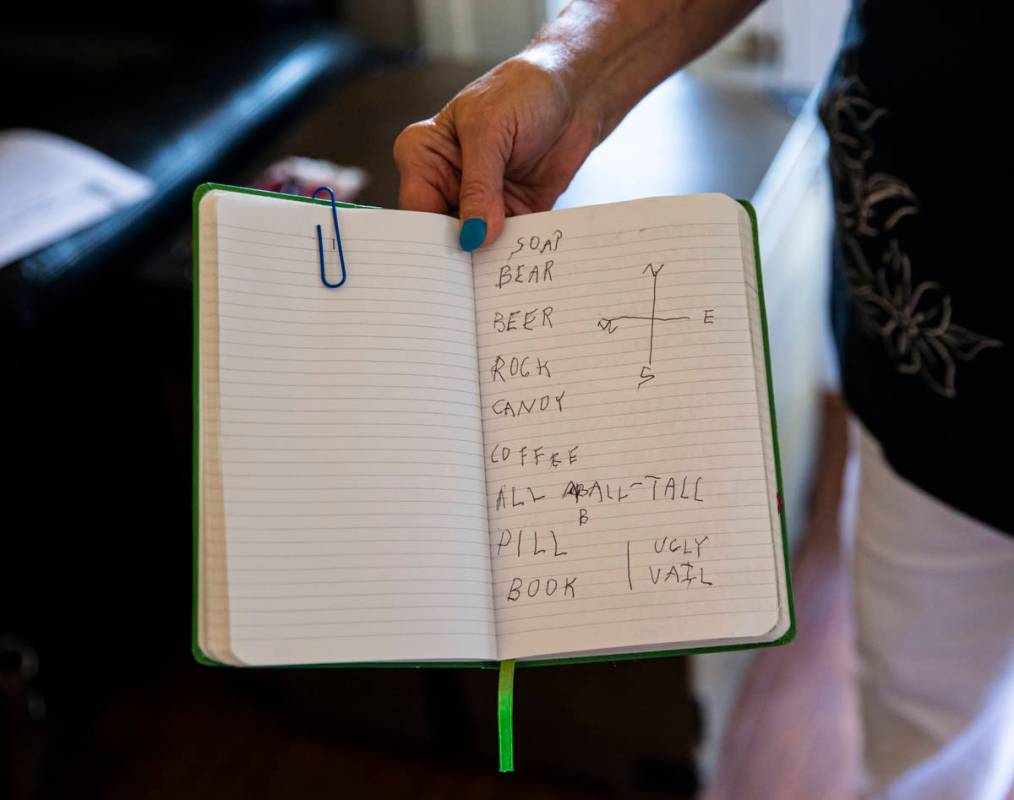 SOAP
BEAR
N
BEER
W E
ROCK
S
CANDY
COFFEE
ALL BALL-TALL
B
PILL
UGLY
BOOK
VAIL